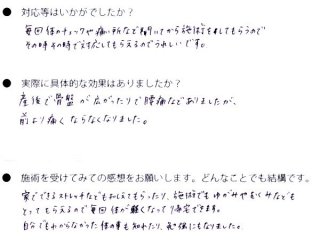 ● 対応等はいかがでしたか？
毎回体のチェックや痛い所など聞いてから施術をしてもらうので
その時その時で対応してもらえるのでうれしいです。
● 実際に具体的な効果はありましたか？
産後で骨盤が広がったりで腰痛などありましたが、
前より痛くならなくなりました。
● 施術を受けてみての感想をお願いします。どんなことでも結構です。
家でできるストレッチなどもおしえてもらったり、施術でもゆがみやむくみなども
とってもらえるので毎回体が軽くなって帰宅できます。
自分でもわからなかった体の事も知れたり、勉強にもなりました。